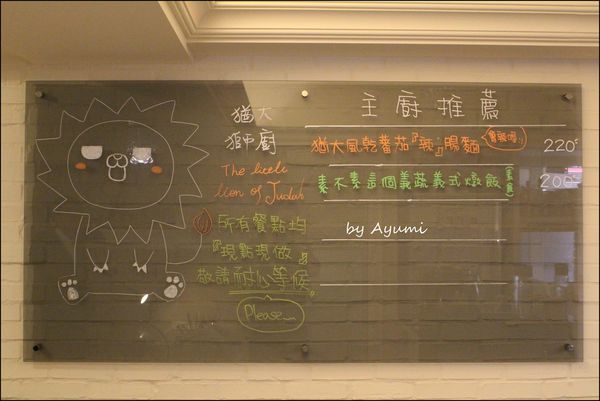 猶大
獅廚
The little
lion of Judah
所有餐點均
『現點現做』
敬請耐心等候。
Please~
主廚推薦
猶大風乾蕃茄『辣』腸麵 220元
素不素這個義蔬義式燉飯(素食) 200元
by Ayumi